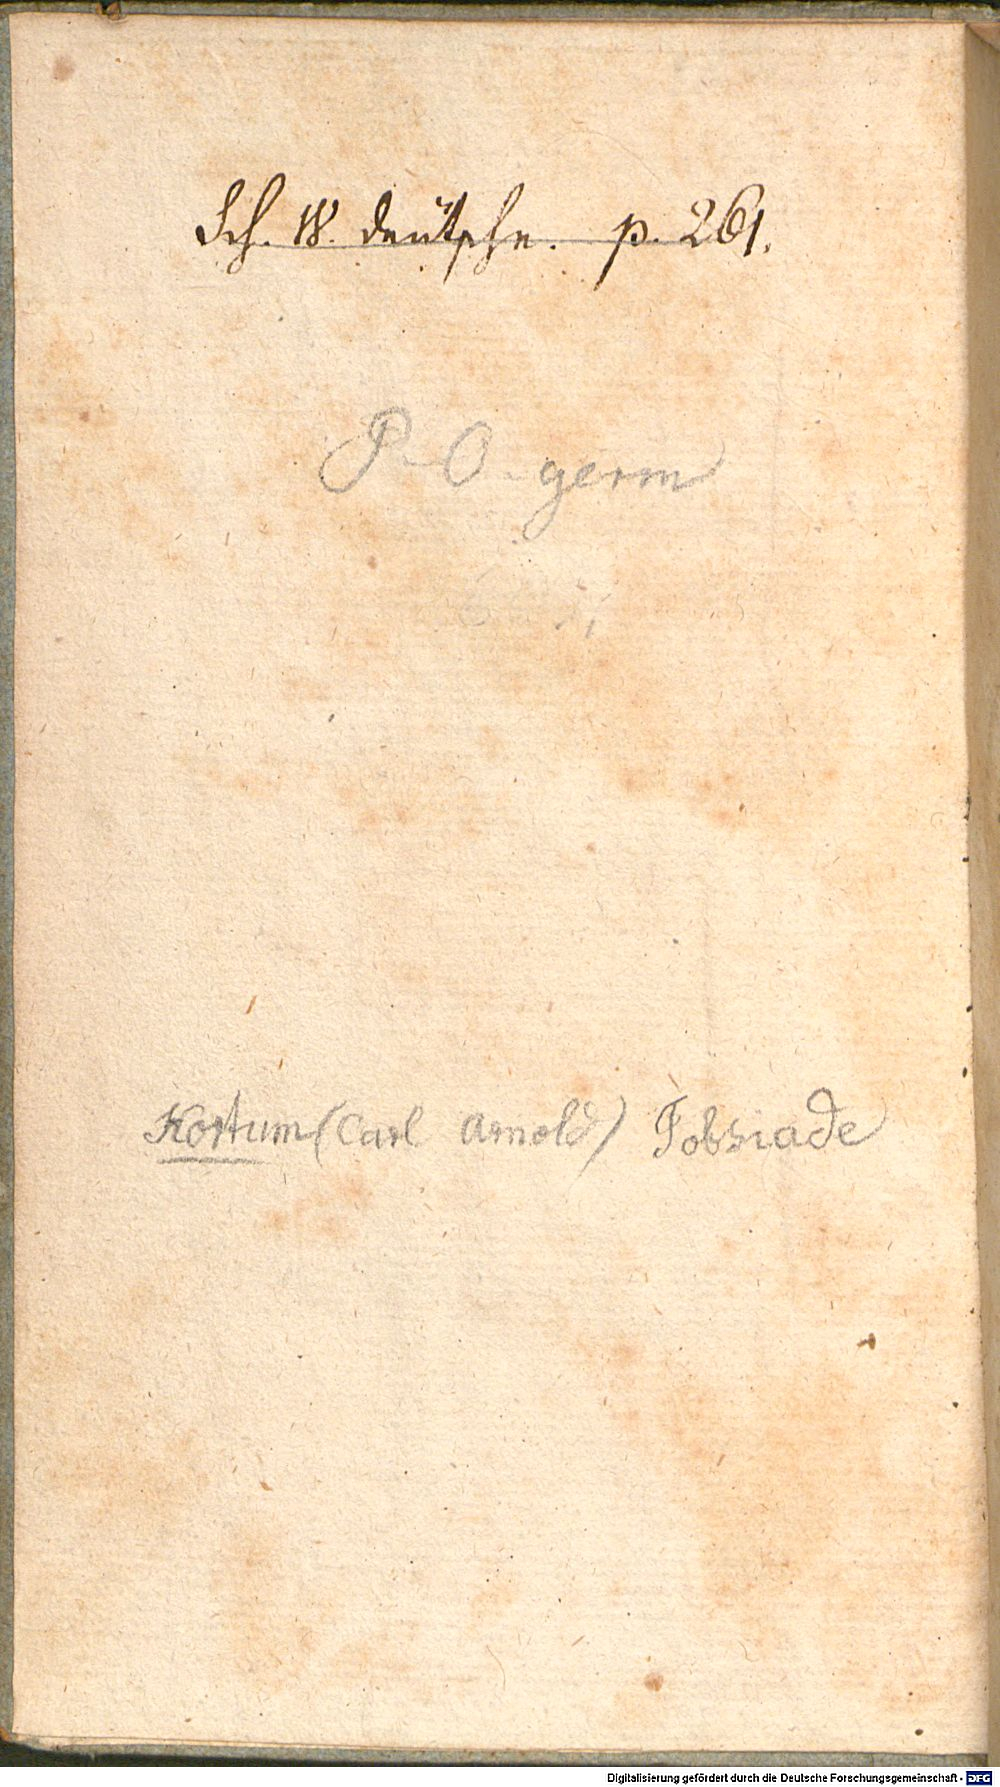 Sch. W. deütsche. p. 261.
P. O. germ
Kortum (Carl Arnold) Jobsiade
Digitalisierung gefördert durch die Deutsche Forschungsgemeinschaft - DFG